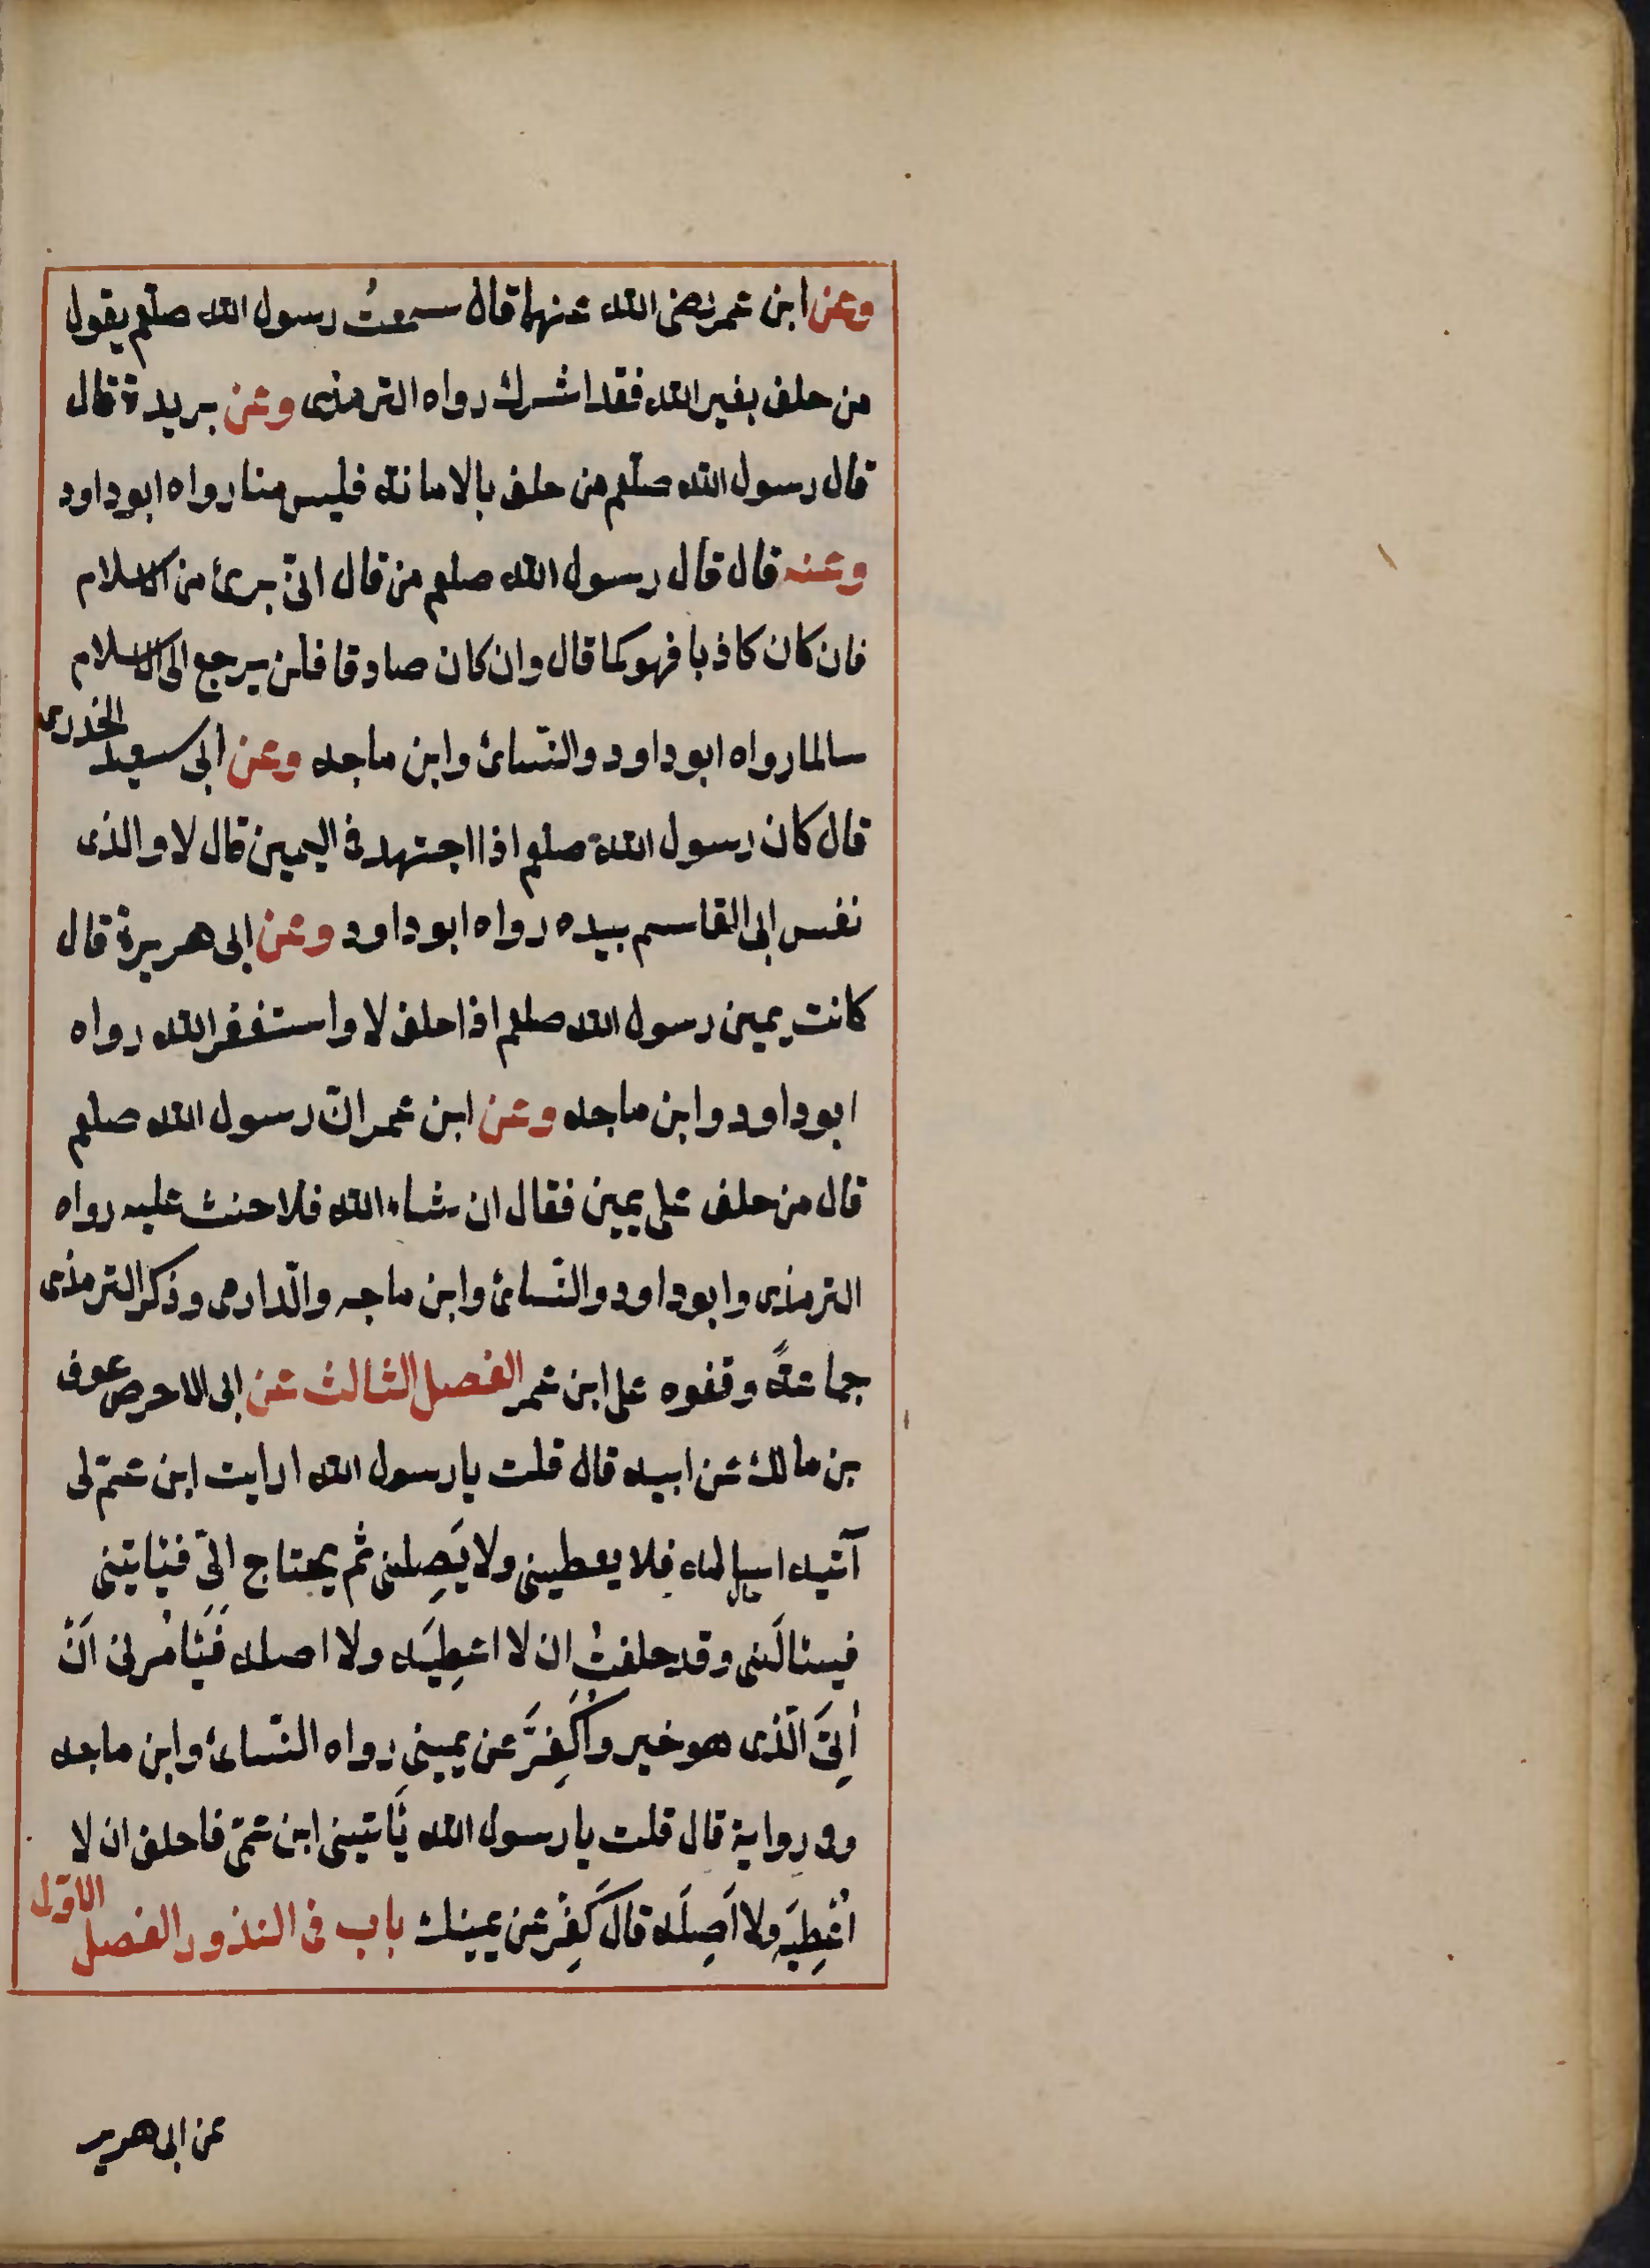 وعن ابن عمر رضى الله عنهما قال سمعتُ رسول الله صلعم يقول
من حلف بغير الله فقد اشرك رواه الترمذى وعن بريدة قال
قال رسول الله صلعم من حلف بالامانة فليس منا رواه ابو داود
وعنه قال قال رسول الله صلعم من قال انّى برئ من الاسلام
فان كان كاذبا فهو كما قال وان كان صادقا فلن يرجع الى الاسلام
سالما رواه ابو داود والنّسائ وابن ماجه وعن أبى سعيد الخدرى
قال كان رسول الله صلعم اذا اجتهد فى اليمين قال لا والذى
نفس ابى القاسم بيده رواه ابو داود وعن ابى هريرة قال
كانت يمين رسول الله صلعم اذا حلف لا واستغفر الله رواه
ابو داود وابن ماجه وعن ابن عمر انّ رسول الله صلعم
قال من حلف على يمين فقال ان شاء الله فلا حنث عليه رواه
الترمذى وابو داود والنّسائ وابن ماجه والدّارمى وذكر الترمذى
جماعةً وقفوه على ابن عمر الفصل الثالث عن ابى الاحوص عوف
بن مالك عن ابيه قال قلت يا رسول الله ارايت ابن عمّ لى
آتيه اساله فلا يعطينى ولا يَصِلنى ثم يحتاج الىّ فيئاتينى
فيسئالَنى وقد حلفتُ ان لا اعطِيَه ولا اصله فَيَئامُرنى اَنْ
أتِىَ الّذى هو خير وأُكَفِّرَ عن يمينى رواه النّسائ وابن ماجه
وفى رواية قال قلت يا رسول الله يَئاتينى ابن عمّى فاحلف ان لا
اُعْطِيَه ولا اَصِلَه قال كَفِّرْ عن يمينك باب فى النذور الفصل الاوّل
عن ابى هرير